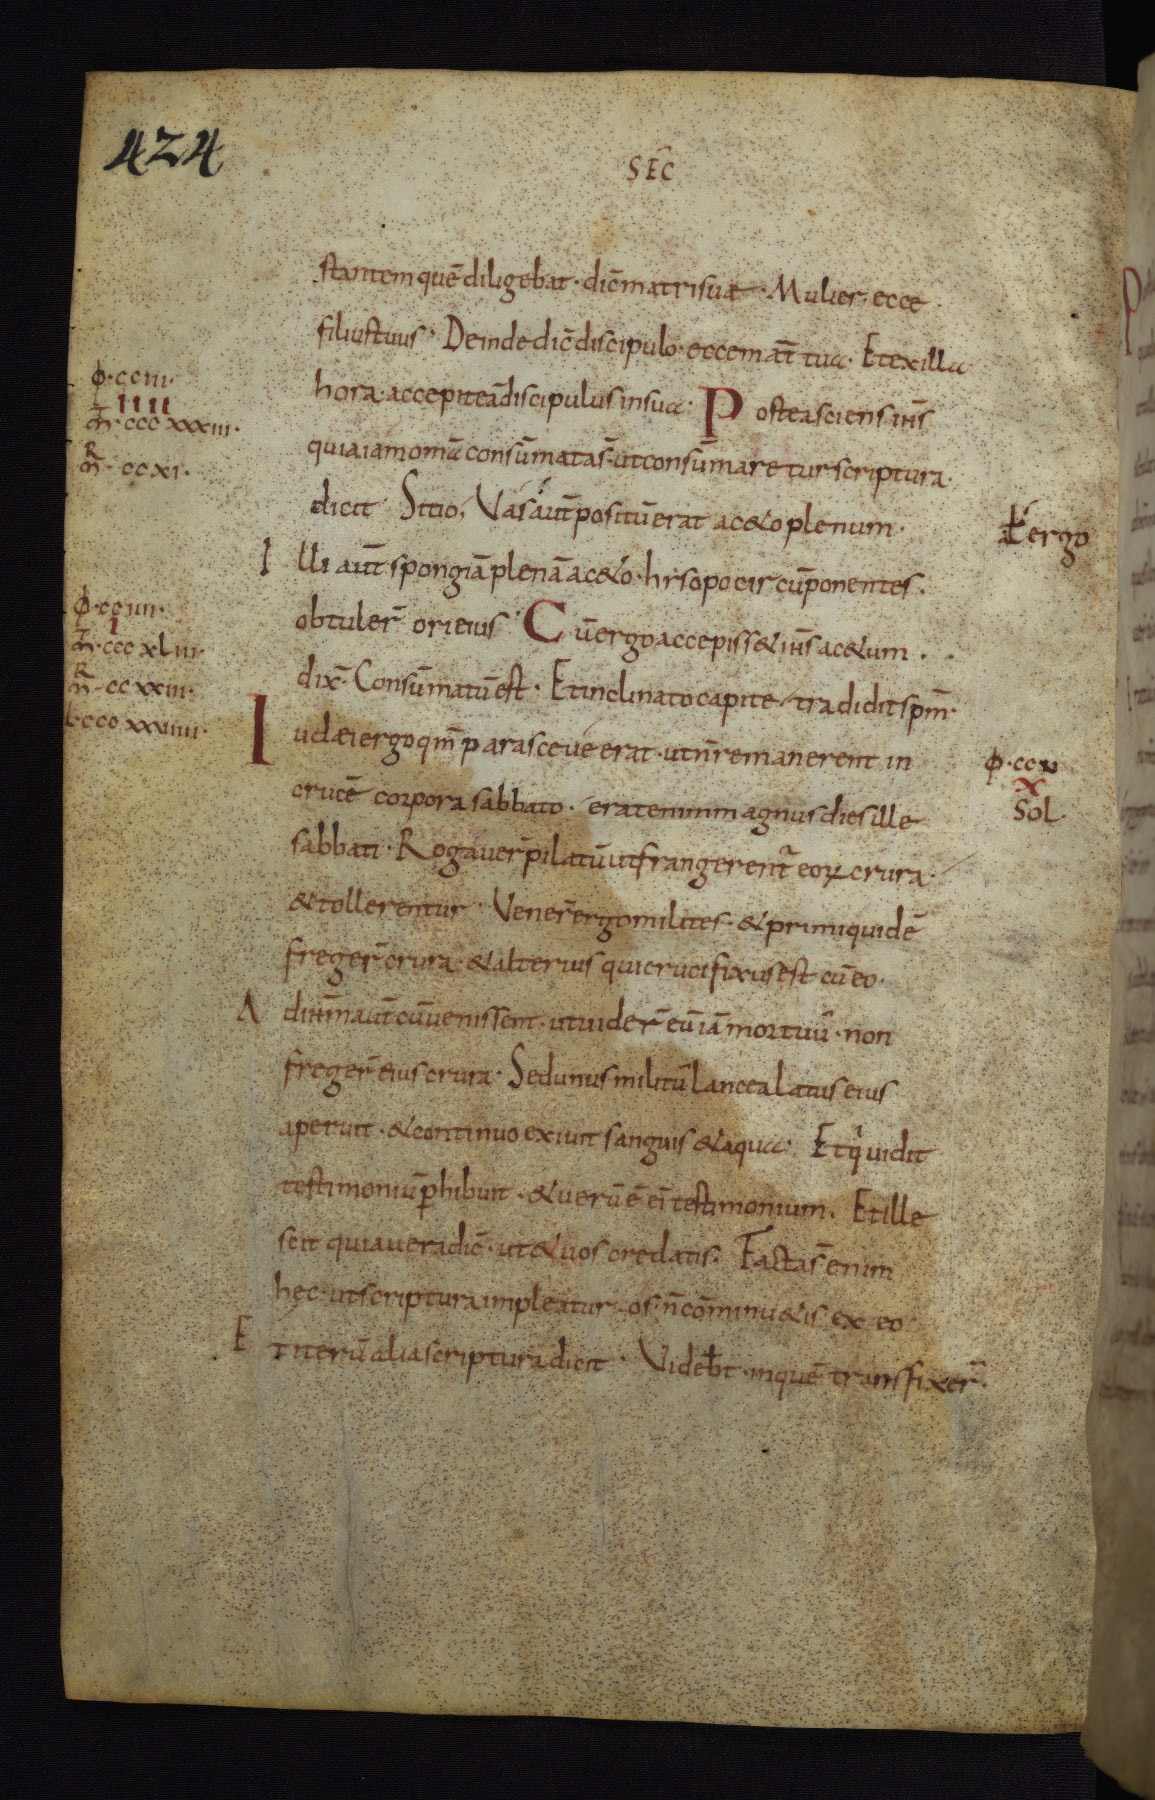 424
SEĈ
stantem quē diligebat · dic̄ matri suæ · Mulier · ecce
filius tuus · Deinde dic̄ discipulo · ecce mat̄ tua · Et ex illa
hora · accepit eā discipulus in sua · Postea sciens ih̄s
quia iam om̄a consūmata s̄ · ut consūmaretur scriptura ·
dicit Sitio, Vas aut̄ positū erat ac&o plenum ·
ꝉ ergo
Illi aut̄ spongiā plenā ac&o · hysopo circūponentes ·
obtuler̄ ori eius · Cū ergo accepiss& ih̄s ac&um ·
dix̄ · Consūmatū est · Et inclinato capite · tradidit sp̄m ·
Iudæi ergo qm̄ parasceue erat · ut n̄ remanerent in
crucē corpora sabbato · erat enim magnus dies ille
sabbati · Rogauer̄ pilatū ut frangerent᷑ eoꝝ crura ·
& tollerentur · Vener̄ ergo milites · & primi quidē
freger̄ crura · & alterius qui crucifixus est cū eo ·
Ad ih̄m aut̄ cū uenissent · ut uider̄ eū iā mortuū · non
freger̄ eius crura · Sed unus militū lancea latus eius
aperuit · & continuo exiuit sanguis & aqua · Et qͥ uidit
testimoniū ꝑhibuit · & uerū ē ei᷑ testimonium · Et ille
scit quia uera dic̄ · ut & uos credatis · Facta s̄ enim
hęc · ut scriptura impleatur · os n̄ cōminu&is ex eo
Et iterū alia scriptura dicit · Videbt̄ · in quē transfixer̄ ·
φ · cciii ·
iiii
m̄ · ccc xxxiii ·
R
m̄ · cc xi ·
φ · cciiii ·
i
m̄ · ccc xliii ·
R
m̄ · cc xxiii ·
L · ccc xxviiii ·
φ · ccv
x
Sol ·